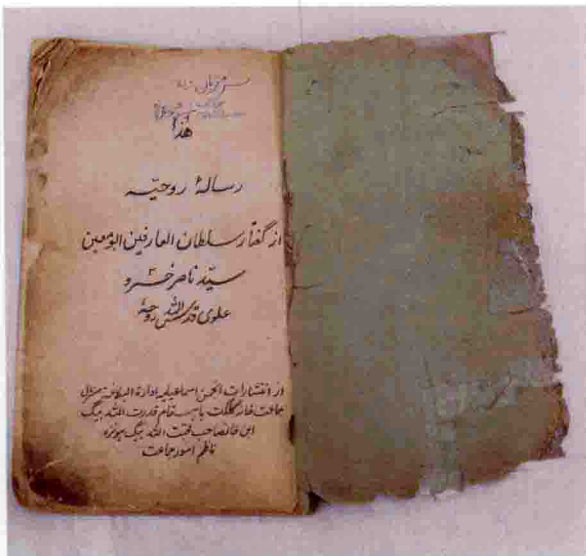 هٰذا
رسالۂ روحیّہ
از گفتار سلطان العارفین ابو معین
سیّد ناصر خسرو
علوی قدس اللہ روحہٗ
از انتشارات انجمن اسماعیلیہ ادارۃ البکائیۃ منزل
جماعت خانہ گلگت باہتمام قدرت اللہ بیگ
ابن خانصاحب محبت اللہ بیگ ہونزہ
ناظم امور جماعت